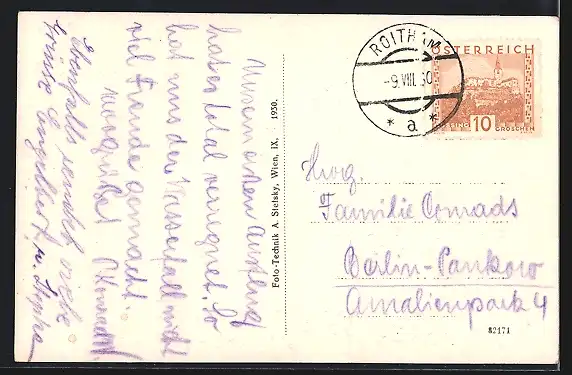 Unseren ersten Ausflug
haben total verregnet. So
hat uns der Wasserfall nicht
viel Freude gemacht.
Konrad
Ebenfalls sendet viele
Grüsse Engelbert u.
Foto-Technik A. Stefsky, Wien, IX. 1930.
ROITHAM
-9.VIII.30
* a *
ÖSTERREICH
10
GROSCHEN
Familie Conrads
Berlin-Pankow
Amalienpark 4
82171